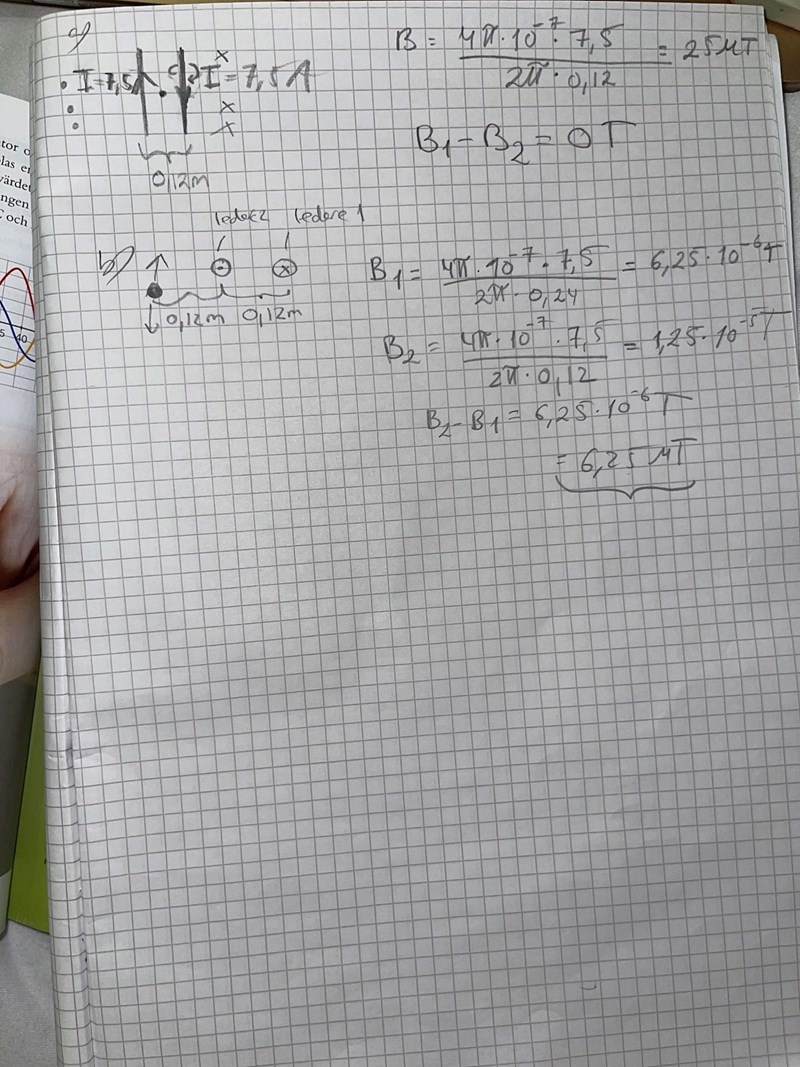 a)
B = 4π·10⁻⁷·7,5 / 2π·0,12 = 25 μT
I=7,5A
I=7,5A
0,12m
B₁ - B₂ = 0T
b)
ledare 2 ledare 1
0,12m 0,12m
B₁ = 4π·10⁻⁷·7,5 / 2π·0,24 = 6,25·10⁻⁶T
B₂ = 4π·10⁻⁷·7,5 / 2π·0,12 = 1,25·10⁻⁵T
B₂-B₁ = 6,25·10⁻⁶T
= 6,25 μT
tor o
las er
värdet
ngen
och
40